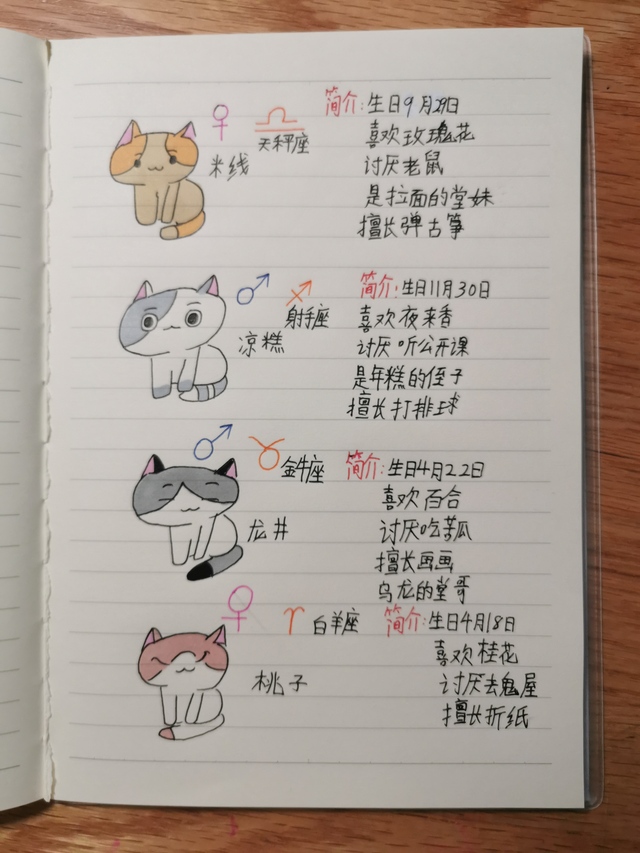 简介:生日9月29日
天秤座
喜欢玫瑰花
米线
讨厌老鼠
是拉面的堂妹
擅长弹古筝
简介:生日11月30日
射手座
喜欢夜来香
凉糕
讨厌听公开课
是年糕的侄子
擅长打排球
金牛座
简介:生日4月22日
喜欢百合
龙井
讨厌吃苦瓜
擅长画画
乌龙的堂哥
白羊座
简介:生日4月18日
喜欢桂花
桃子
讨厌去鬼屋
擅长折纸